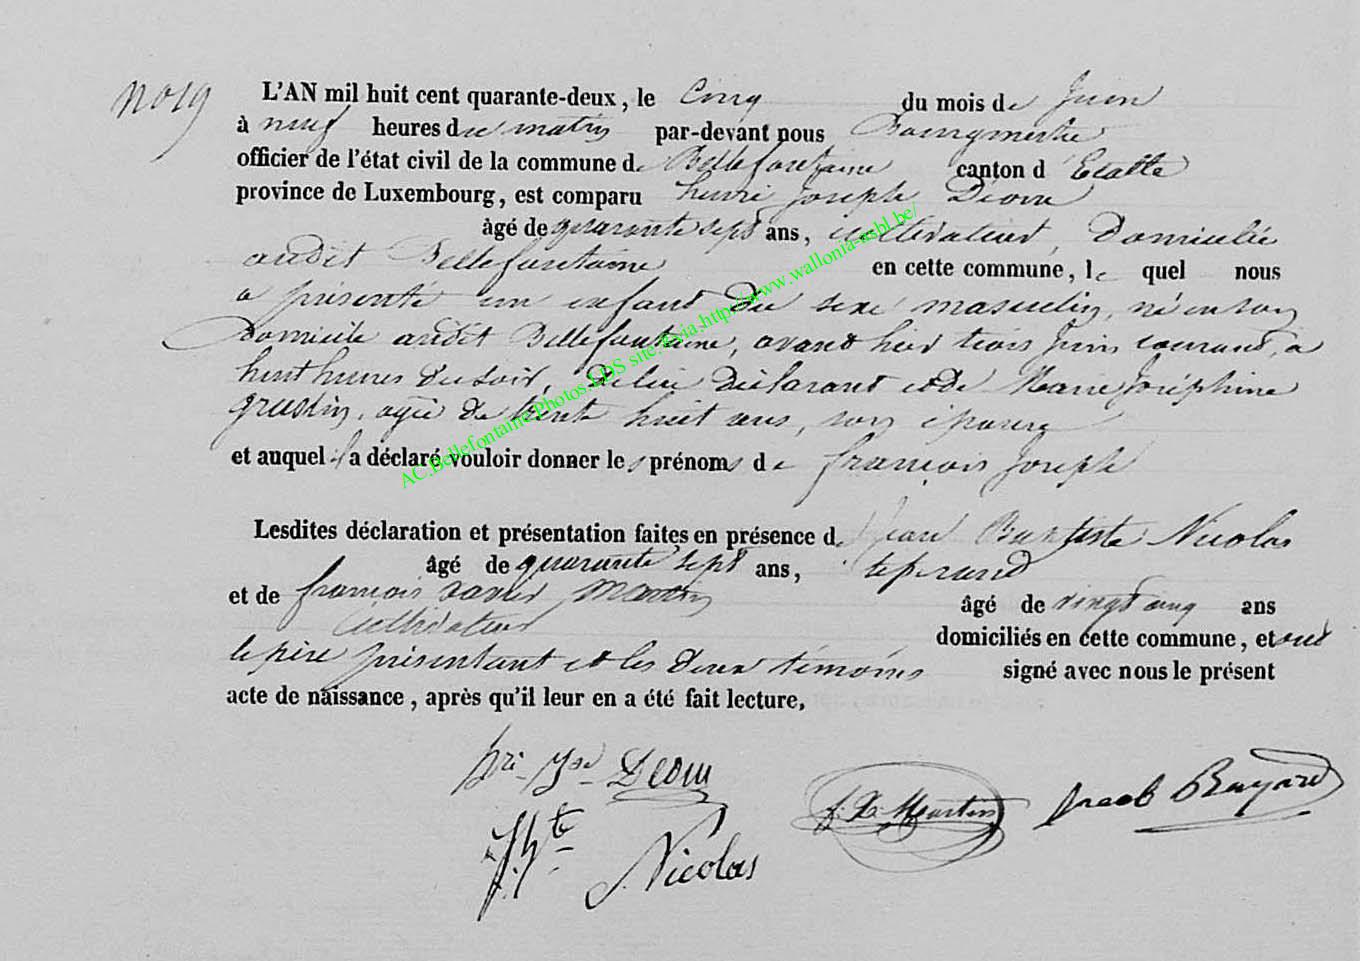 No 19
L'AN mil huit cent quarante-deux, le Cinq du mois de Juin
à neuf heures du matin par-devant nous Bourgmestre
officier de l'état civil de la commune de Bellefontaine canton d'Etalle
province de Luxembourg, est comparu henri joseph Déom
âgé de quarante sept ans, cultivateur, Domicilié
audit Bellefontaine en cette commune, le quel nous
a présenté un enfant du sexe masculin, né en son
Domicile audit Bellefontaine, avant hier trois Juin courant, a
huit heures du soir, de lui déclarant et de Marie Joséphine
âgée de trente huit ans, son épouse
et auquel il a déclaré vouloir donner les prénoms de françois Joseph
Lesdites déclaration et présentation faites en présence de Jean Baptiste Nicolas
âgé de quarante sept ans,
et de françois xavier Martin âgé de vingt cinq ans
Cultivateur domiciliés en cette commune, et ont
le père présentant et les deux témoins signé avec nous le présent
acte de naissance, après qu'il leur en a été fait lecture.
Hri Jph Deom
F. X. Martin
Jacob Buyard
J. Bte Nicolas
AC.Bellefontaine.Photos.LDS site.fr.via.http://www.wallonia-asbl.be/